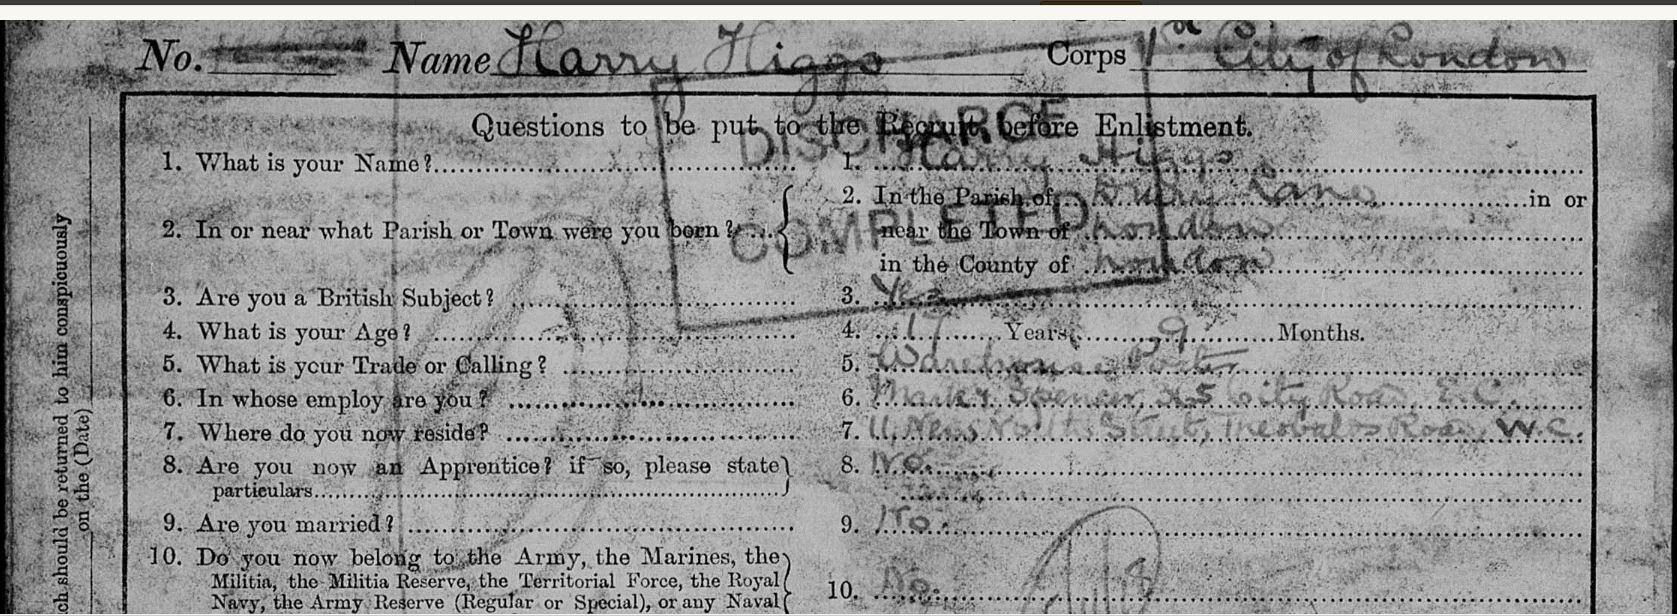 No. Name Harry Higgs Corps 1st City of London
Questions to be put to the Recruit before Enlistment.
DISCHARGE
COMPLETED
1. What is your Name?
1. Harry Higgs
2. In or near what Parish or Town were you born?
2. In the Parish of Drury Lane in or
near the Town of London
in the County of London
3. Are you a British Subject?
3. Yes
4. What is your Age?
4. 17 Years, 9 Months.
5. What is your Trade or Calling?
5. Warehouse Porter
6. In whose employ are you?
6. Spencer, City Road, E.C.
7. Where do you now reside?
7. 11, New North Street, Theobalds Road, W.C.
8. Are you now an Apprentice? if so, please state
particulars
8. No.
9. Are you married?
9. No.
10. Do you now belong to the Army, the Marines, the
Militia, the Militia Reserve, the Territorial Force, the Royal
Navy, the Army Reserve (Regular or Special), or any Naval
10. No.
ch should be returned to him conspicuously
on the (Date)